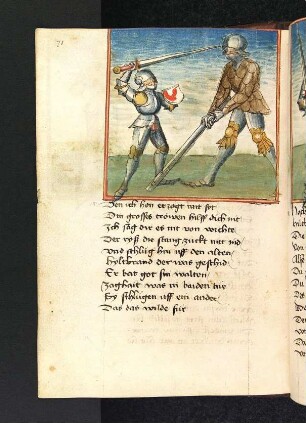 71
Den ich hon er zögt mitset
Din grosses tröwen hilff dich nit
Ich sag dir es nit von wichte
Der ryß die stang zuckt mit nid
vnd schlug hin uff den alten
hyltbrand der was geschid
Er bat got sin walten
Zaghait was in baiden tür
Sy schlugen uff ein ander
Das das wilde für